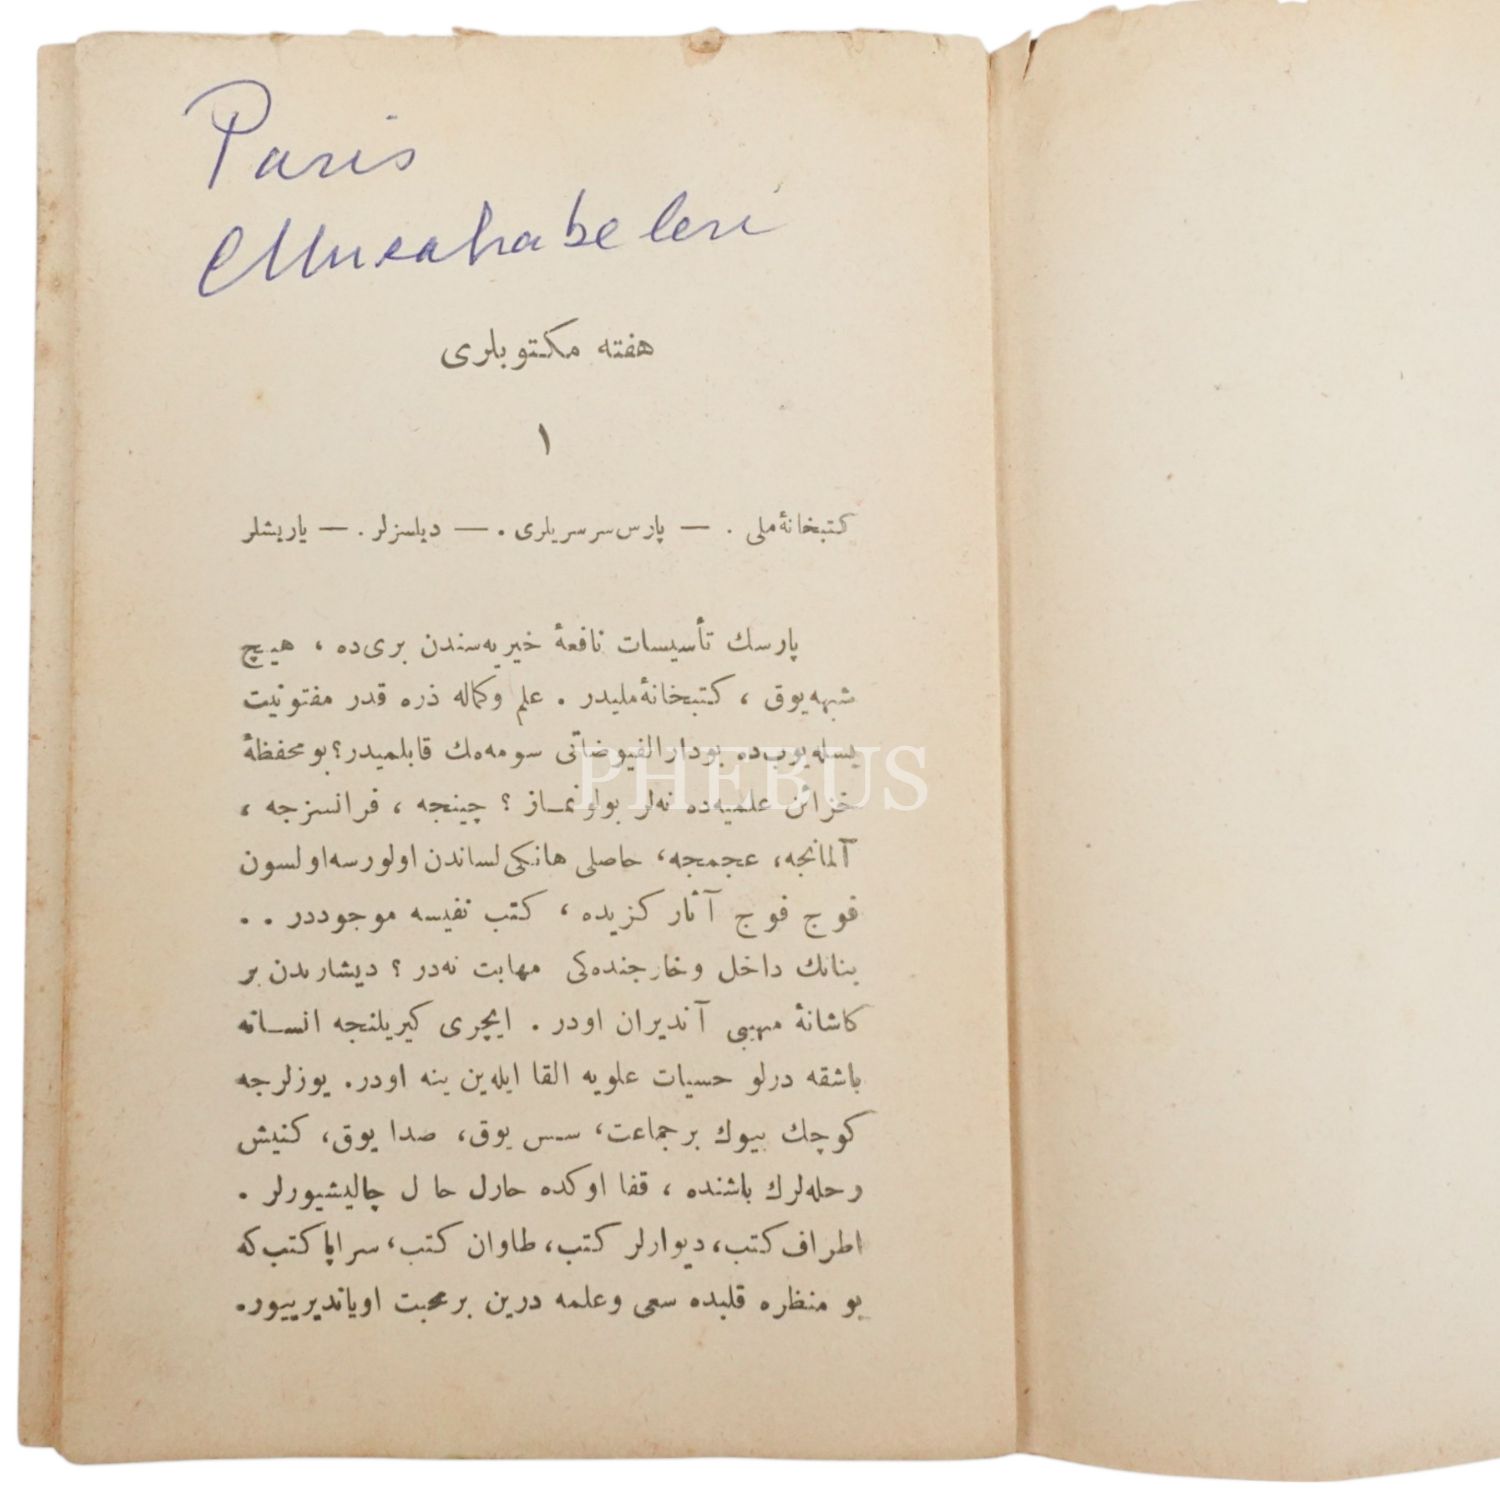 Paris
Musahabeleri
هفته مكتوبلری
١
كتبخانهٔ ملی . — پارس سرسریلری . — دیلسزلر . — یاریشلر
پارسك تأسیسات نافعهٔ خیریه‌سندن بری‌ده ، هیچ
شبهه‌یوق ، كتبخانهٔ ملیدر . علم وكماله ذره قدر مفتونیت
بسله‌یوب‌ده بودارالفیوضاتی سومه‌مك قابلمیدر؟ بو محفظهٔ
خزائن علمیه‌ده نه‌لر بولونماز ؟ چینجه ، فرانسزجه ،
آلمانجه، عجمجه، حاصلی هانكی لساندن اولورسه‌اولسون
فوج فوج آثار كزیده ، كتب نفیسه موجوددر . .
بنانك داخل وخارجنده‌كی مهابت نه‌در ؟ دیشاریدن بر
كاشانهٔ مهیبی آندیران اودر . ایچری كیریلنجه انسانه
باشقه درلو حسیات علویه القا ایله‌ین ینه اودر. یوزلرجه
كوچك بیوك برجماعت، سس یوق، صدا یوق، كنیش
رحله‌لرك باشنده ، قفا اوكده حارل حارل چالیشیورلر .
اطراف كتب، دیوارلر كتب، طاوان كتب، سراپا كتب كه
بو منظره قلبده سعی وعلمه درین برمحبت اویاندیرییور.
PHEBUS